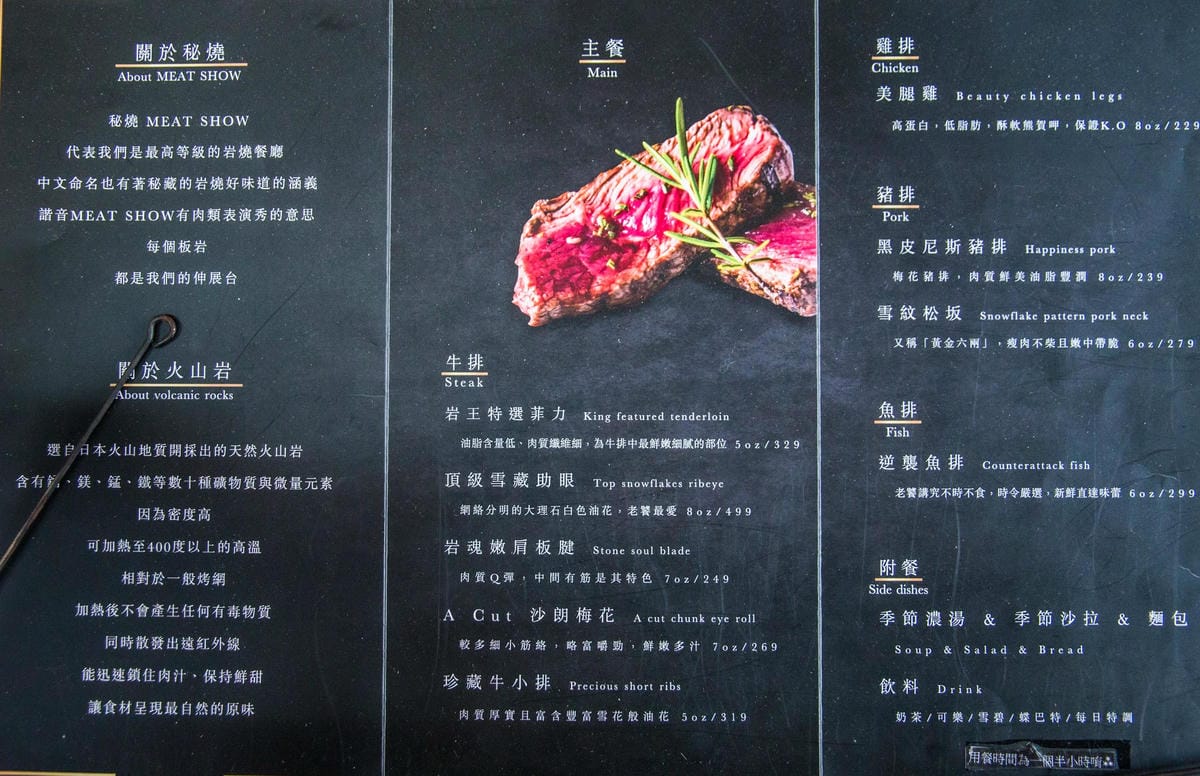 關於秘燒
About MEAT SHOW
秘燒 MEAT SHOW
代表我們是最高等級的岩燒餐廳
中文命名也有著秘藏的岩燒好味道的涵義
諧音MEAT SHOW有肉類表演秀的意思
每個板岩
都是我們的伸展台
關於火山岩
About volcanic rocks
選自日本火山地質開採出的天然火山岩
含有、鎂、錳、鐵等數十種礦物質與微量元素
因為密度高
可加熱至400度以上的高溫
相對於一般烤網
加熱後不會產生任何有毒物質
同時散發出遠紅外線
能迅速鎖住肉汁、保持鮮甜
讓食材呈現最自然的原味
主餐
Main
牛排
Steak
岩王特選菲力 King featured tenderloin
油脂含量低、肉質纖維細，為牛排中最鮮嫩細膩的部位 5oz/329
頂級雪藏肋眼 Top snowflakes ribeye
網絡分明的大理石白色油花，老饕最愛 8oz/499
岩魂嫩肩板腱 Stone soul blade
肉質Q彈，中間有筋是其特色 7oz/249
A Cut 沙朗梅花 A cut chunk eye roll
較多細小筋絡，略富嚼勁，鮮嫩多汁 7oz/269
珍藏牛小排 Precious short ribs
肉質厚實且富含豐富雪花般油花 5oz/319
雞排
Chicken
美腿雞 Beauty chicken legs
高蛋白，低脂肪，酥軟熊賀呷，保證K.O 8oz/229
豬排
Pork
黑皮尼斯豬排 Happiness pork
梅花豬排，肉質鮮美油脂豐潤 8oz/239
雪紋松坂 Snowflake pattern pork neck
又稱「黃金六兩」，瘦肉不柴且嫩中帶脆 6oz/279
魚排
Fish
逆襲魚排 Counterattack fish
老饕講究不時不食，時令嚴選，新鮮直達味蕾 6oz/299
附餐
Side dishes
季節濃湯 & 季節沙拉 & 麵包
Soup & Salad & Bread
飲料 Drink
奶茶/可樂/雪碧/蝶巴特/每日特調
用餐時間為一個半小時唷